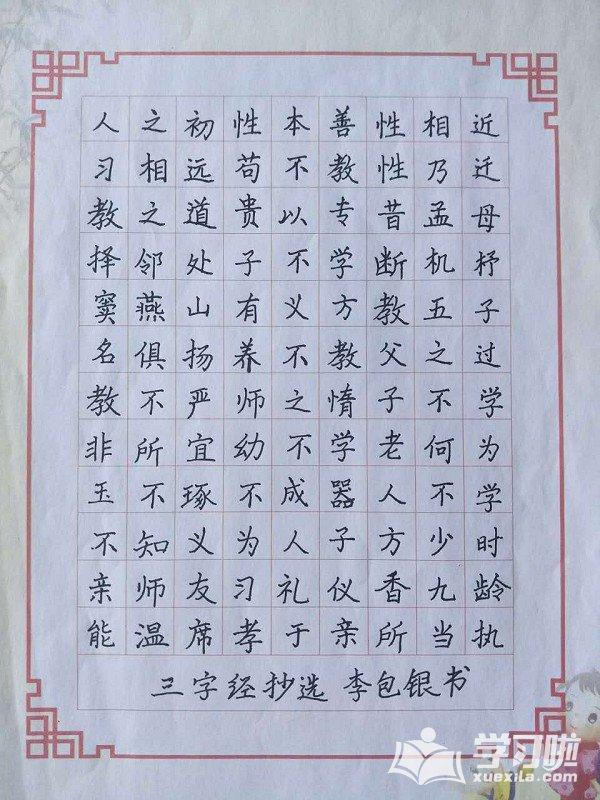 人之初性本善性相近
习相远苟不教性乃迁
教之道贵以专昔孟母
择邻处子不学断机杼
窦燕山有义方教五子
名俱扬养不教父之过
教不严师之惰子不学
非所宜幼不学老何为
玉不琢不成器人不学
不知义为人子方少时
亲师友习礼仪香九龄
能温席孝于亲所当执
三字经抄选 李包银书
学习啦
xuexila.com